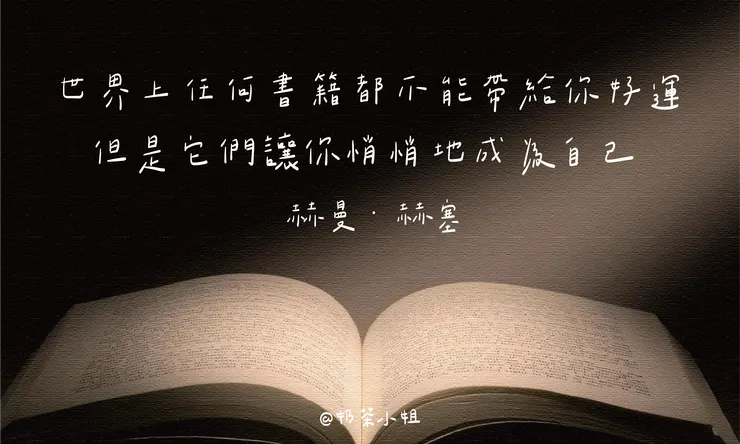 世界上任何書籍都不能帶給你好運
但是它們讓你悄悄地成為自己
赫曼·赫塞
@奶茶小姐